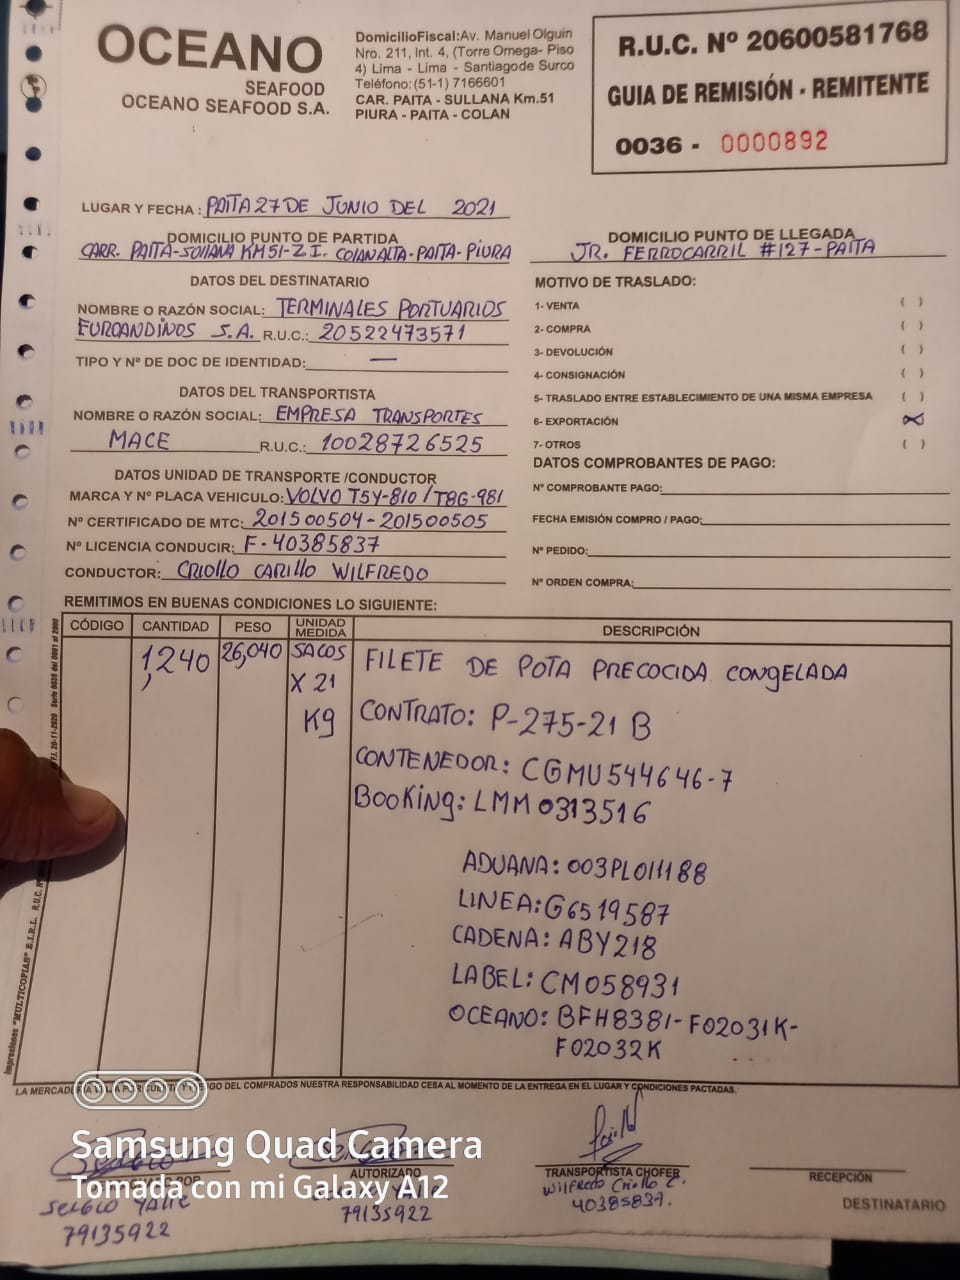 OCEANO
SEAFOOD
OCEANO SEAFOOD S.A.
DomicilioFiscal:Av. Manuel Olguin
Nro. 211, Int. 4, (Torre Omega- Piso
4) Lima - Lima - Santiagode Surco
Teléfono:(51-1) 7166601
CAR. PAITA - SULLANA Km.51
PIURA - PAITA - COLAN
R.U.C. Nº 20600581768
GUIA DE REMISIÓN - REMITENTE
0036 - 0000892
LUGAR Y FECHA : PAITA 27 DE JUNIO DEL 2021
DOMICILIO PUNTO DE PARTIDA
CARR. PAITA-SULLANA KM51-Z.I. COLAN ALTA-PAITA-PIURA
DOMICILIO PUNTO DE LLEGADA
JR. FERROCARRIL #127-PAITA
DATOS DEL DESTINATARIO
NOMBRE O RAZÓN SOCIAL: TERMINALES PORTUARIOS
EUROANDINOS S.A. R.U.C.: 20522473571
TIPO Y Nº DE DOC DE IDENTIDAD: —
MOTIVO DE TRASLADO:
1- VENTA ( )
2- COMPRA ( )
3- DEVOLUCIÓN ( )
4- CONSIGNACIÓN ( )
5- TRASLADO ENTRE ESTABLECIMIENTO DE UNA MISMA EMPRESA ( )
6- EXPORTACIÓN (X)
7- OTROS ( )
DATOS DEL TRANSPORTISTA
NOMBRE O RAZÓN SOCIAL: EMPRESA TRANSPORTES
MACE R.U.C.: 10028726525
DATOS UNIDAD DE TRANSPORTE /CONDUCTOR
MARCA Y Nº PLACA VEHICULO: VOLVO T5Y-810 / T8G-981
Nº CERTIFICADO DE MTC: 201500504-201500505
Nº LICENCIA CONDUCIR: F-40385837
CONDUCTOR: CRIOLLO CARILLO WILFREDO
DATOS COMPROBANTES DE PAGO:
Nº COMPROBANTE PAGO:
FECHA EMISIÓN COMPRO / PAGO:
Nº PEDIDO:
Nº ORDEN COMPRA:
REMITIMOS EN BUENAS CONDICIONES LO SIGUIENTE:
CÓDIGO CANTIDAD PESO UNIDAD MEDIDA DESCRIPCIÓN
1,240 26,040 SACOS FILETE DE POTA PRECOCIDA CONGELADA
X 21
Kg CONTRATO: P-275-21 B
CONTENEDOR: CGMU544646-7
BOOKING: LMM0313516
ADUANA: 003PL011188
LINEA: G6519587
CADENA: ABY218
LABEL: CM058931
OCEANO: BFH8381-F02031K-
F02032K
Impresiones "MULTICOPIAS" E.I.R.L.
20-11-2020 Serie 0036 del 0001 al 2000
LA MERCADERIA VIAJA POR CUENTA Y RIESGO DEL COMPRADOS NUESTRA RESPONSABILIDAD CESA AL MOMENTO DE LA ENTREGA EN EL LUGAR Y CONDICIONES PACTADAS.
AUTORIZADO
TRANSPORTISTA CHOFER
RECEPCIÓN
DESTINATARIO
Sergio Yalle
79135922
79135922
Wilfredo Criollo C.
40385837.
Samsung Quad Camera
Tomada con mi Galaxy A12